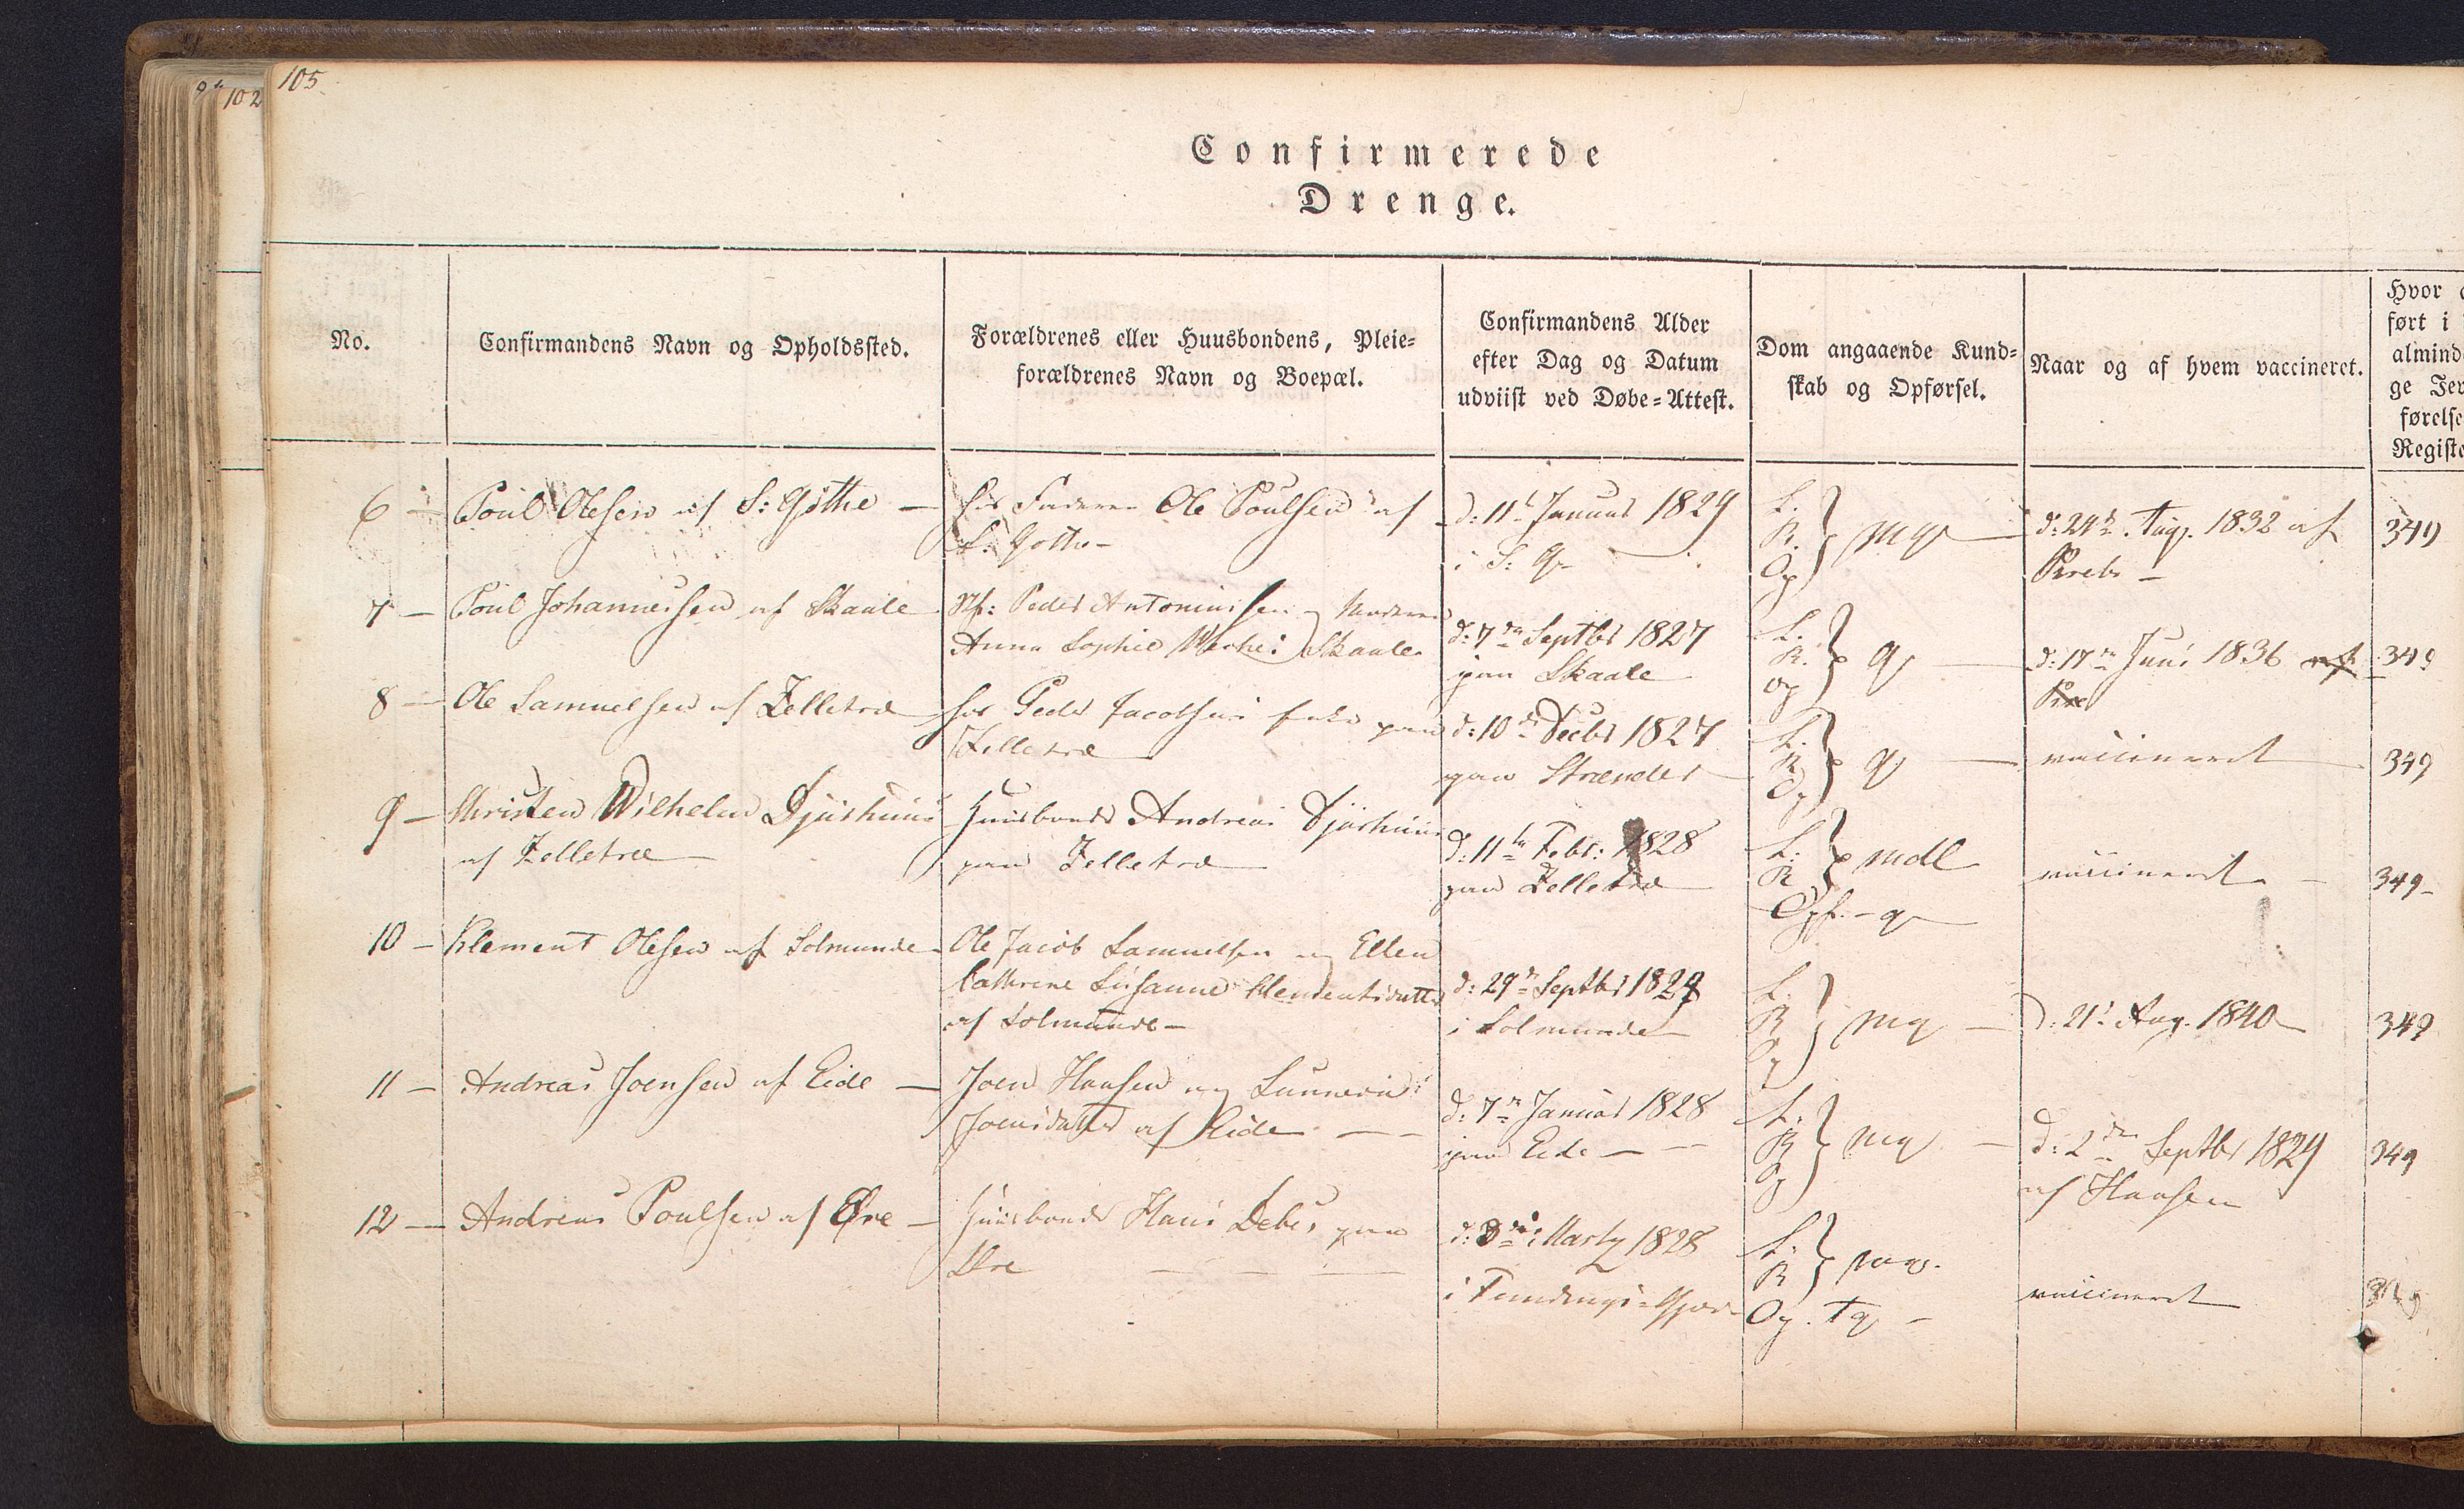 105
102
Confirmerede
Drenge.
No.
Confirmandens Navn og Opholdssted.
Forældrenes eller Huusbondens, Pleie-
forældrenes Navn og Boepæl.
Confirmandens Alder
efter Dag og Datum
udviist ved Døbe-Attest.
Dom angaaende Kund-
skab og Opførsel.
Naar og af hvem vaccineret.
Hvor
ført i
almind
ge Jev
førelse
Registe
6 — Poul Olesen af S: Gøthe —
hos Faderen Ole Poulsen af
S. Gøthe —
d: 11t Januar 1829
i S: G
L.
K.
Op } mg —
d: 24d. Aug. 1832 af
349
7 — Poul Johannessen af Skaale
Stf: Peder Antoniussen og Moderen
Anna Sophie Skaale
d: 7de Septbr 1827
paa Skaale
L.
K.
Op } g —
d: 17de Juni 1836 af
349
8 — Ole Samuelsen af Zelletræ
hos Peder Jacobsen paa
Zelletræ
d: 10de Decbr 1827
paa Strænder
L.
K
Op } g —
vaccineret
349
9 — Christen Wilhelm Djurhuus
af Zelletræ
Huusbonde Andreas Djurhuus
paa Zelletræ
d: 11te Febr: 1828
paa Zelletræ
L:
K } mdl
Opf. - g
vaccineret —
349 -
10 — Klement Olesen af Solmunde
Ole Jacob Samuelsen og Ellen
Cathrine Susanne Clementsdatter
af Solmunde —
d: 29de Septbr 1827
i Solmunde
L.
K
Op } mg —
d: 21t Aug. 1840
349
11 — Andreas Joensen af Eide —
Joen Hansen og Sunneva
Joensdatter af Eide —
d: 7de Januar 1828
paa Eide —
L.
K
Op } mg —
d: 2den Septbr 1829
af Hansen
349
12 — Andreas Poulsen af Øre —
Huusbonde Hans Debes paa
Øre
d: 3die Marty 1828
i Fundings-Gjov
L.
K } mg.
Op. Tg —
vaccineret
349